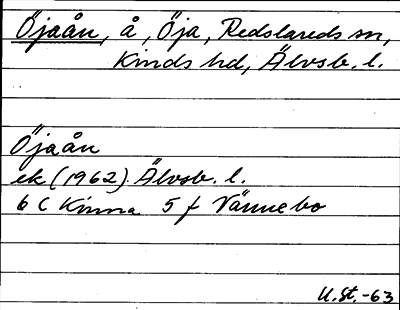 Öjaån, å, Öja, Redslareds sn,
Kinds hd, Älvsb. l.
Öjaån
ek (1962) Älvsb. l.
6 C Kinna 5 f Vännebo
U.St.-63